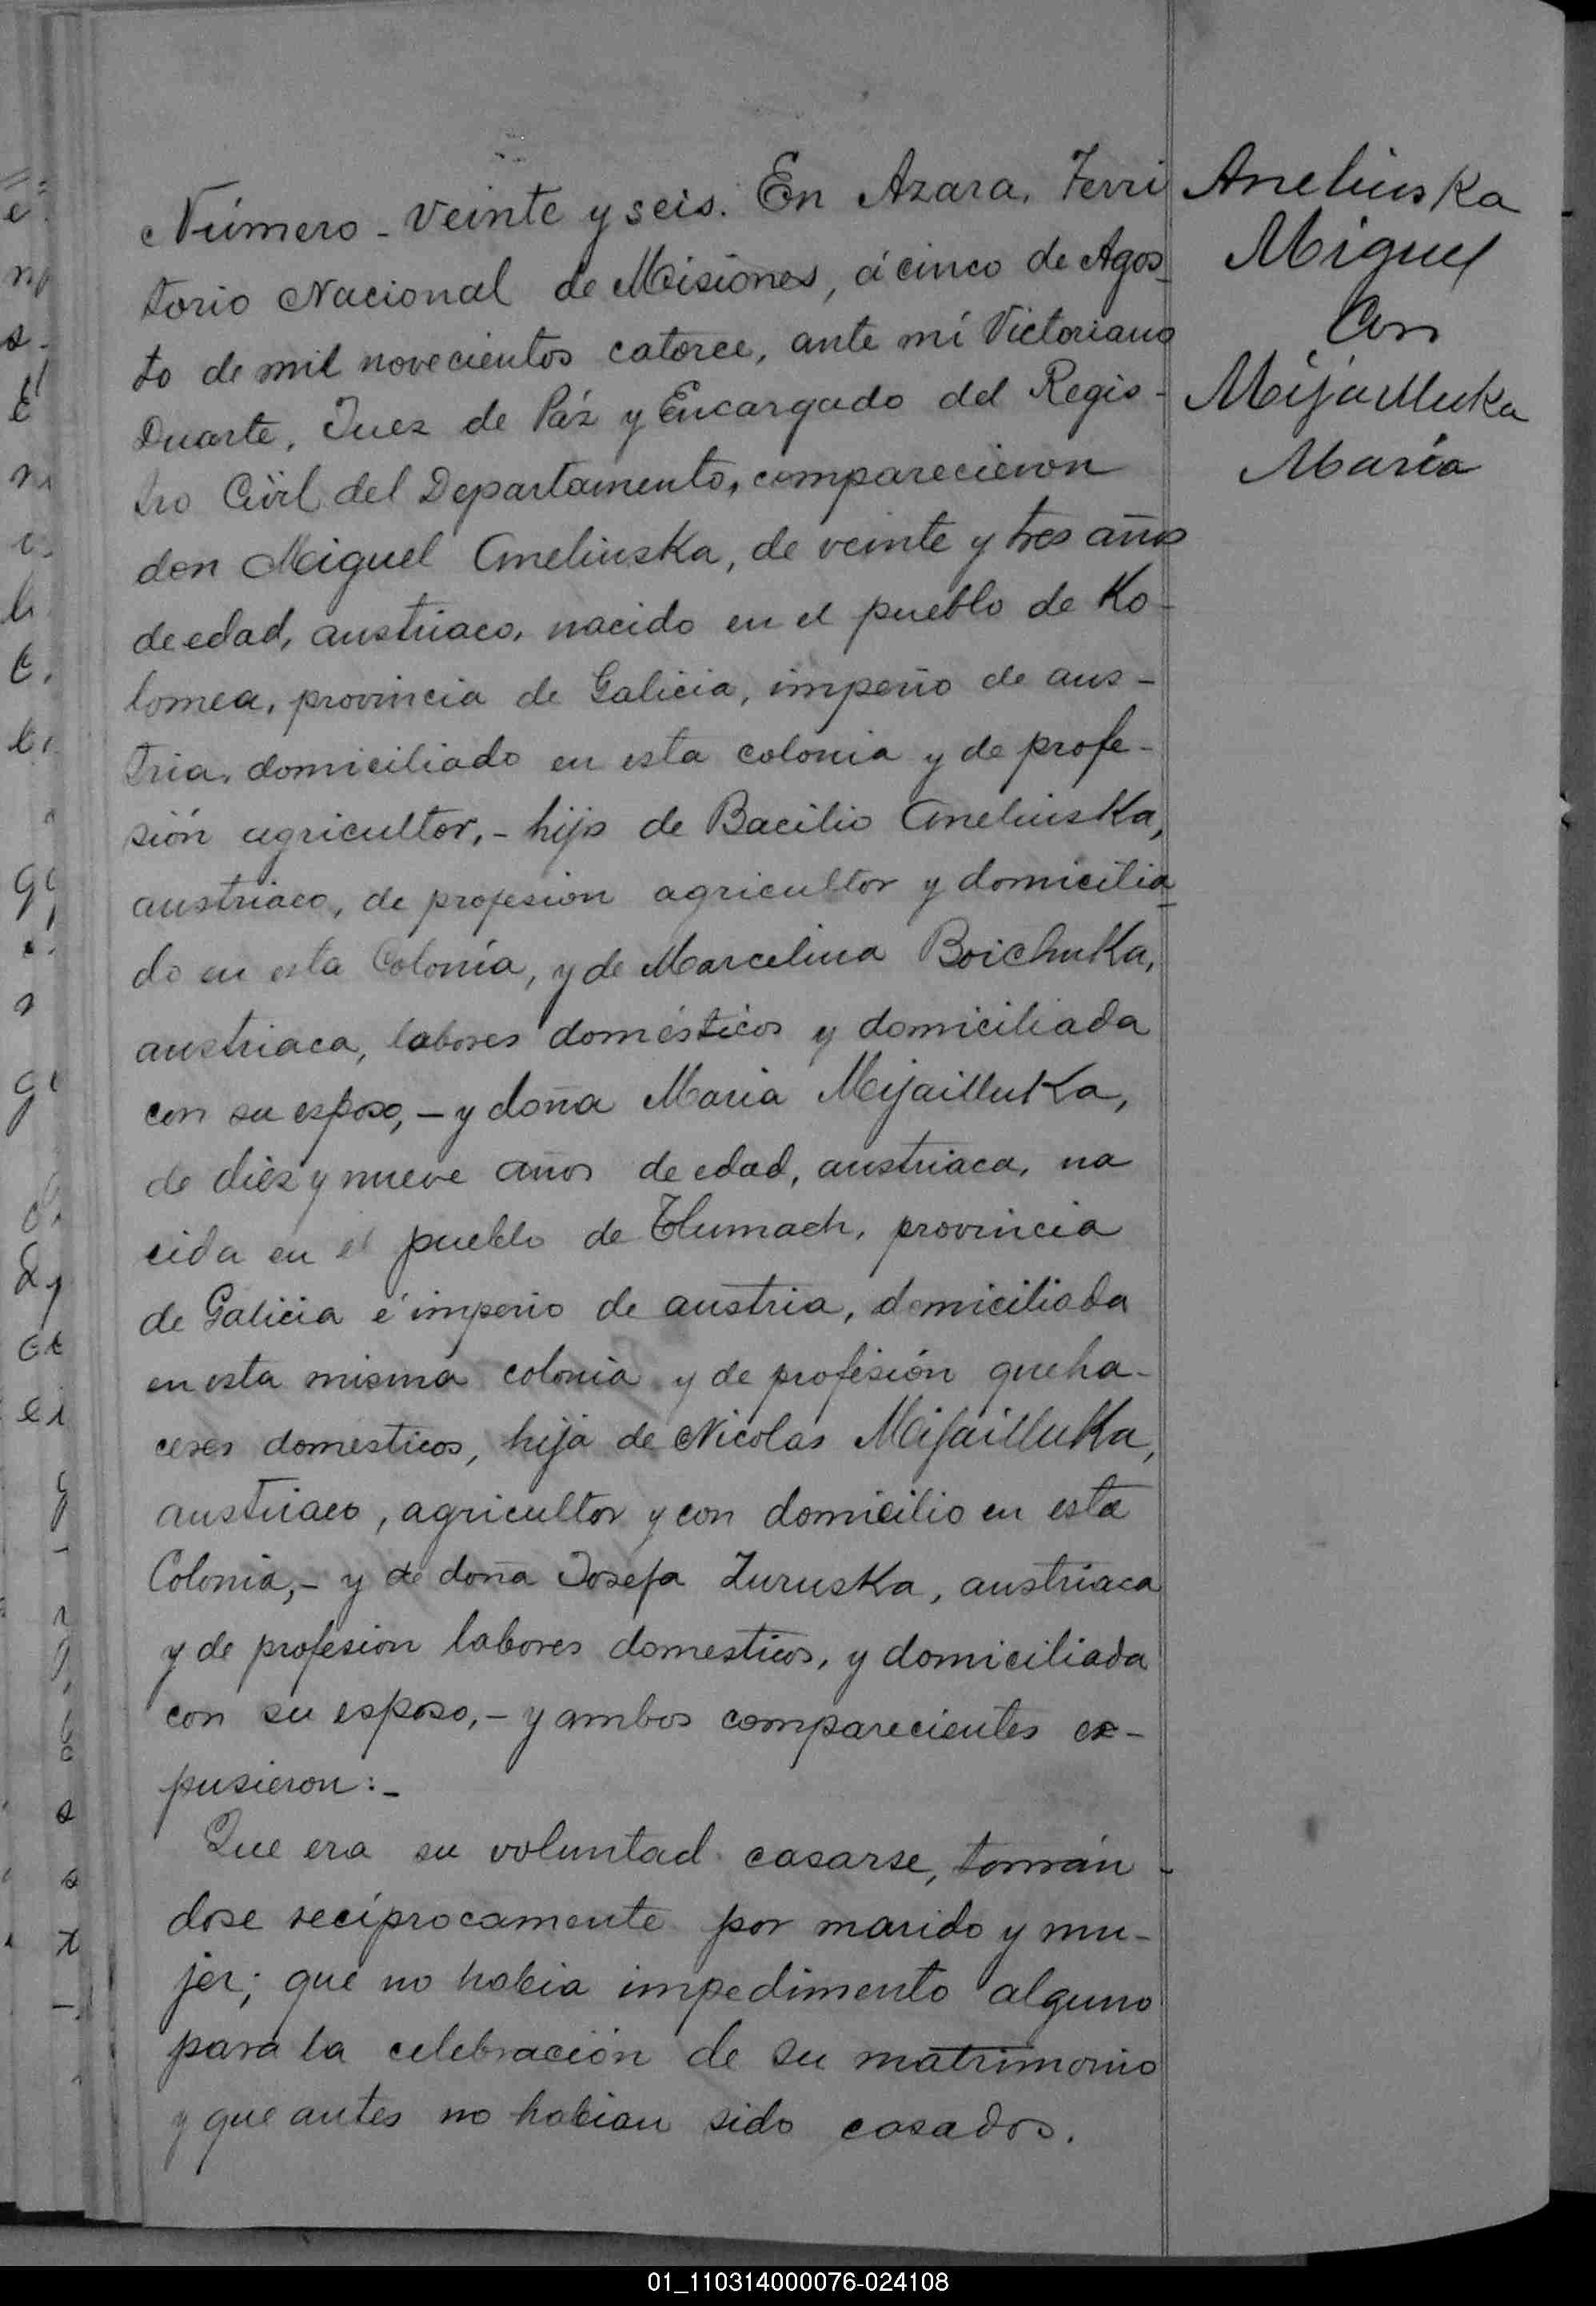 Número - veinte y seis. En Azara, Terri
torio Nacional de Misiones, á cinco de Agos-
to de mil novecientos catorce, ante mí Victoriano
Duarte, Juez de Páz y Encargado del Regis-
tro Civil del Departamento, comparecieron
don Miguel Anelinska, de veinte y tres años
de edad, austriaco, nacido en el pueblo de Ko-
lomea, provincia de Galicia, imperio de aus-
tria, domiciliado en esta colonia y de profe-
sión agricultor, - hijo de Bacilio Anelinska,
austriaco, de profesion agricultor y domicilia
do en esta Colonia, y de Marcelina Boichuka,
austriaca, labores domésticos y domiciliada
con su esposo, - y doña Maria Mijailluka,
de diez y nueve años de edad, austriaca, na
cida en el pueblo de Tlumach, provincia
de Galicia é imperio de austria, domiciliada
en esta misma colonia y de profesión queha-
ceres domesticos, hija de Nicolas Mijailluka,
austriaco, agricultor y con domicilio en esta
Colonia, - y de doña Josefa Zuruska, austriaca
y de profesion labores domesticos, y domiciliada
con su esposo, - y ambos comparecientes ex-
pusieron: -
Que era su voluntad casarse, tomán-
dose recíprocamente por marido y mu-
jer; que no habia impedimento alguno
para la celebración de su matrimonio
y que antes no habian sido casados.
Anelinska
Miguel
Con
Mijailluka
María
01_110314000076-024108